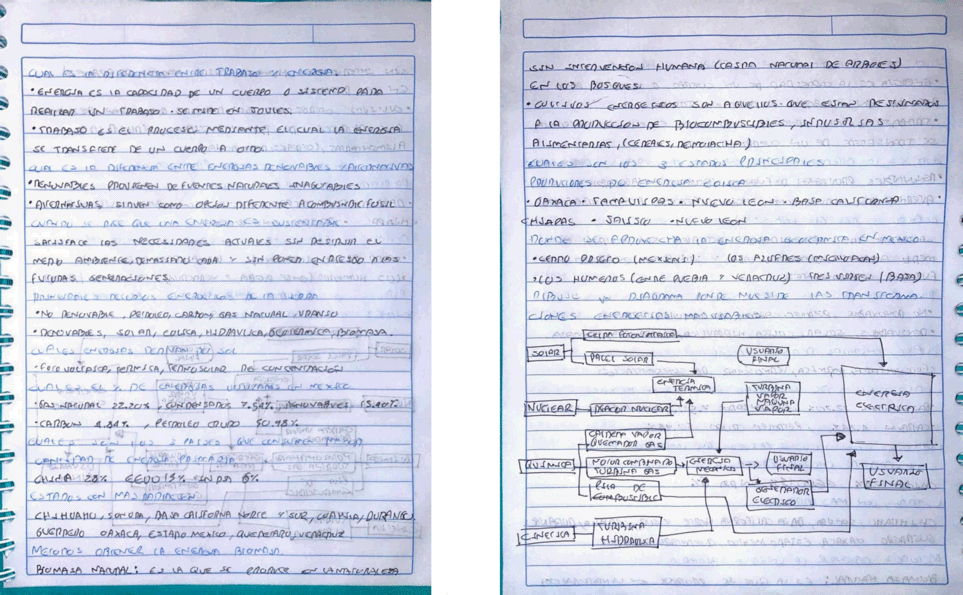 CUAL ES LA DIFERENCIA ENTRE TRABAJO Y ENERGIA:
• ENERGIA ES LA CAPACIDAD DE UN CUERPO O SISTEMA PARA
REALIZAR UN TRABAJO. SE MIDE EN JOULES.
• TRABAJO ES EL PROCESO MEDIANTE EL CUAL LA ENERGIA
SE TRANSFIERE DE UN CUERPO A OTRO.
CUAL ES LA DIFERENCIA ENTRE ENERGIAS RENOVABLES Y ALTERNATIVAS
• RENOVABLES PROVIENEN DE FUENTES NATURALES INAGOTABLES
• ALTERNATIVAS SIRVEN COMO OPCION DIFERENTE A COMBUSTIBLE FOSIL
CUANDO SE DICE QUE UNA ENERGIA ES SUSTENTABLE
SATISFACE LAS NECESIDADES ACTUALES SIN DESTRUIR EL
MEDIO AMBIENTE, DEMASIADO CADA Y SIN PONER EN RIESGO A LAS
FUTURAS GENERACIONES.
PRINCIPALES RECURSOS ENERGETICOS DE LA TIERRA
• NO RENOVABLE, PETROLEO, CARBON, GAS NATURAL, URANIO
• RENOVABLES, SOLAR, EOLICA, HIDRAULICA, GEOTERMICA, BIOMASA.
CUALES ENERGIAS DERIVAN DEL SOL
• FOTOVOLTAICA, TERMICA, TERMOSOLAR DE CONCENTRACIÓN
CUALES EL % DE ENERGIAS UTILIZADAS EN MEXICO
• GAS NATURAL 22.20%, CONDENSADOS 7.54%, RENOVABLES 15.40%
• CARBON 4.34%, PETROLEO CRUDO 50.48%
CUALES SON LOS 3 PAISES QUE CONSUMEN MAYOR
CANTIDAD DE ENERGIA PRIMARIA
CHINA 28% EEUU 15% INDIA 6%
ESTADOS CON MAS RADIACION
CHIHUAHU, SONORA, BAJA CALIFORNIA NORTE Y SUR, COAHUILA, DURANGO
GUERRERO OAXACA, ESTADO MEXICO, QUERETARO, VERACRUZ
METODOS OBTENER LA ENERGIA BIOMASA.
BIOMASA NATURAL: ES LA QUE SE PRODUCE EN LA NATURALEZA
SIN INTERVENCION HUMANA (CAIDA NATURAL DE ARBOLES)
EN LOS BOSQUES.
• CULTIVOS ENERGETICOS SON AQUELLOS QUE ESTAN DESTINADOS
A LA PRODUCCION DE BIOCOMBUSTIBLES, INDUSTRIAS
ALIMENTARIAS, (CEREALES, REMOLACHA)
CUALES SON LOS 3 ESTADOS PRINCIPALES
PRODUCTORES DE ENERGIA EOLICA
• OAXACA • TAMAULIPAS • NUEVO LEON • BAJA CALIFORNIA
CHIAPAS • JALISCO • NUEVO LEON
DONDE SE APROVECHA LA ENERGIA GEOTERMICA EN MEXICO
• CERRO PRIETO (MEXICALI) LOS AZUFRES (MICHOACAN)
• LOS HUMEROS (ENTRE PUEBLA Y VERACRUZ) TRES VIRGENES (BAJA)
DIBUJE UN DIAGRAMA DONDE MUESTRE LAS TRANSFORMA
CIONES ENERGETICAS MAS USADAS
CELDA FOTOVOLTAICA
SOLAR
PANEL SOLAR
USUARIO FINAL
ENERGIA TERMICA
TURBINA VAPOR MAQUINA VAPOR
ENERGIA ELECTRICA
NUCLEAR
REACTOR NUCLEAR
CALDERA VAPOR QUEMADOR GAS
QUIMICA
MOTOR COMBINADO TURBINA GAS
ENERGIA MECANICA
USUARIO FINAL
USUARIO FINAL
PILA DE COMBUSTIBLE
GENERADOR ELECTRICO
CINETICA
TURBINA HIDRAULICA